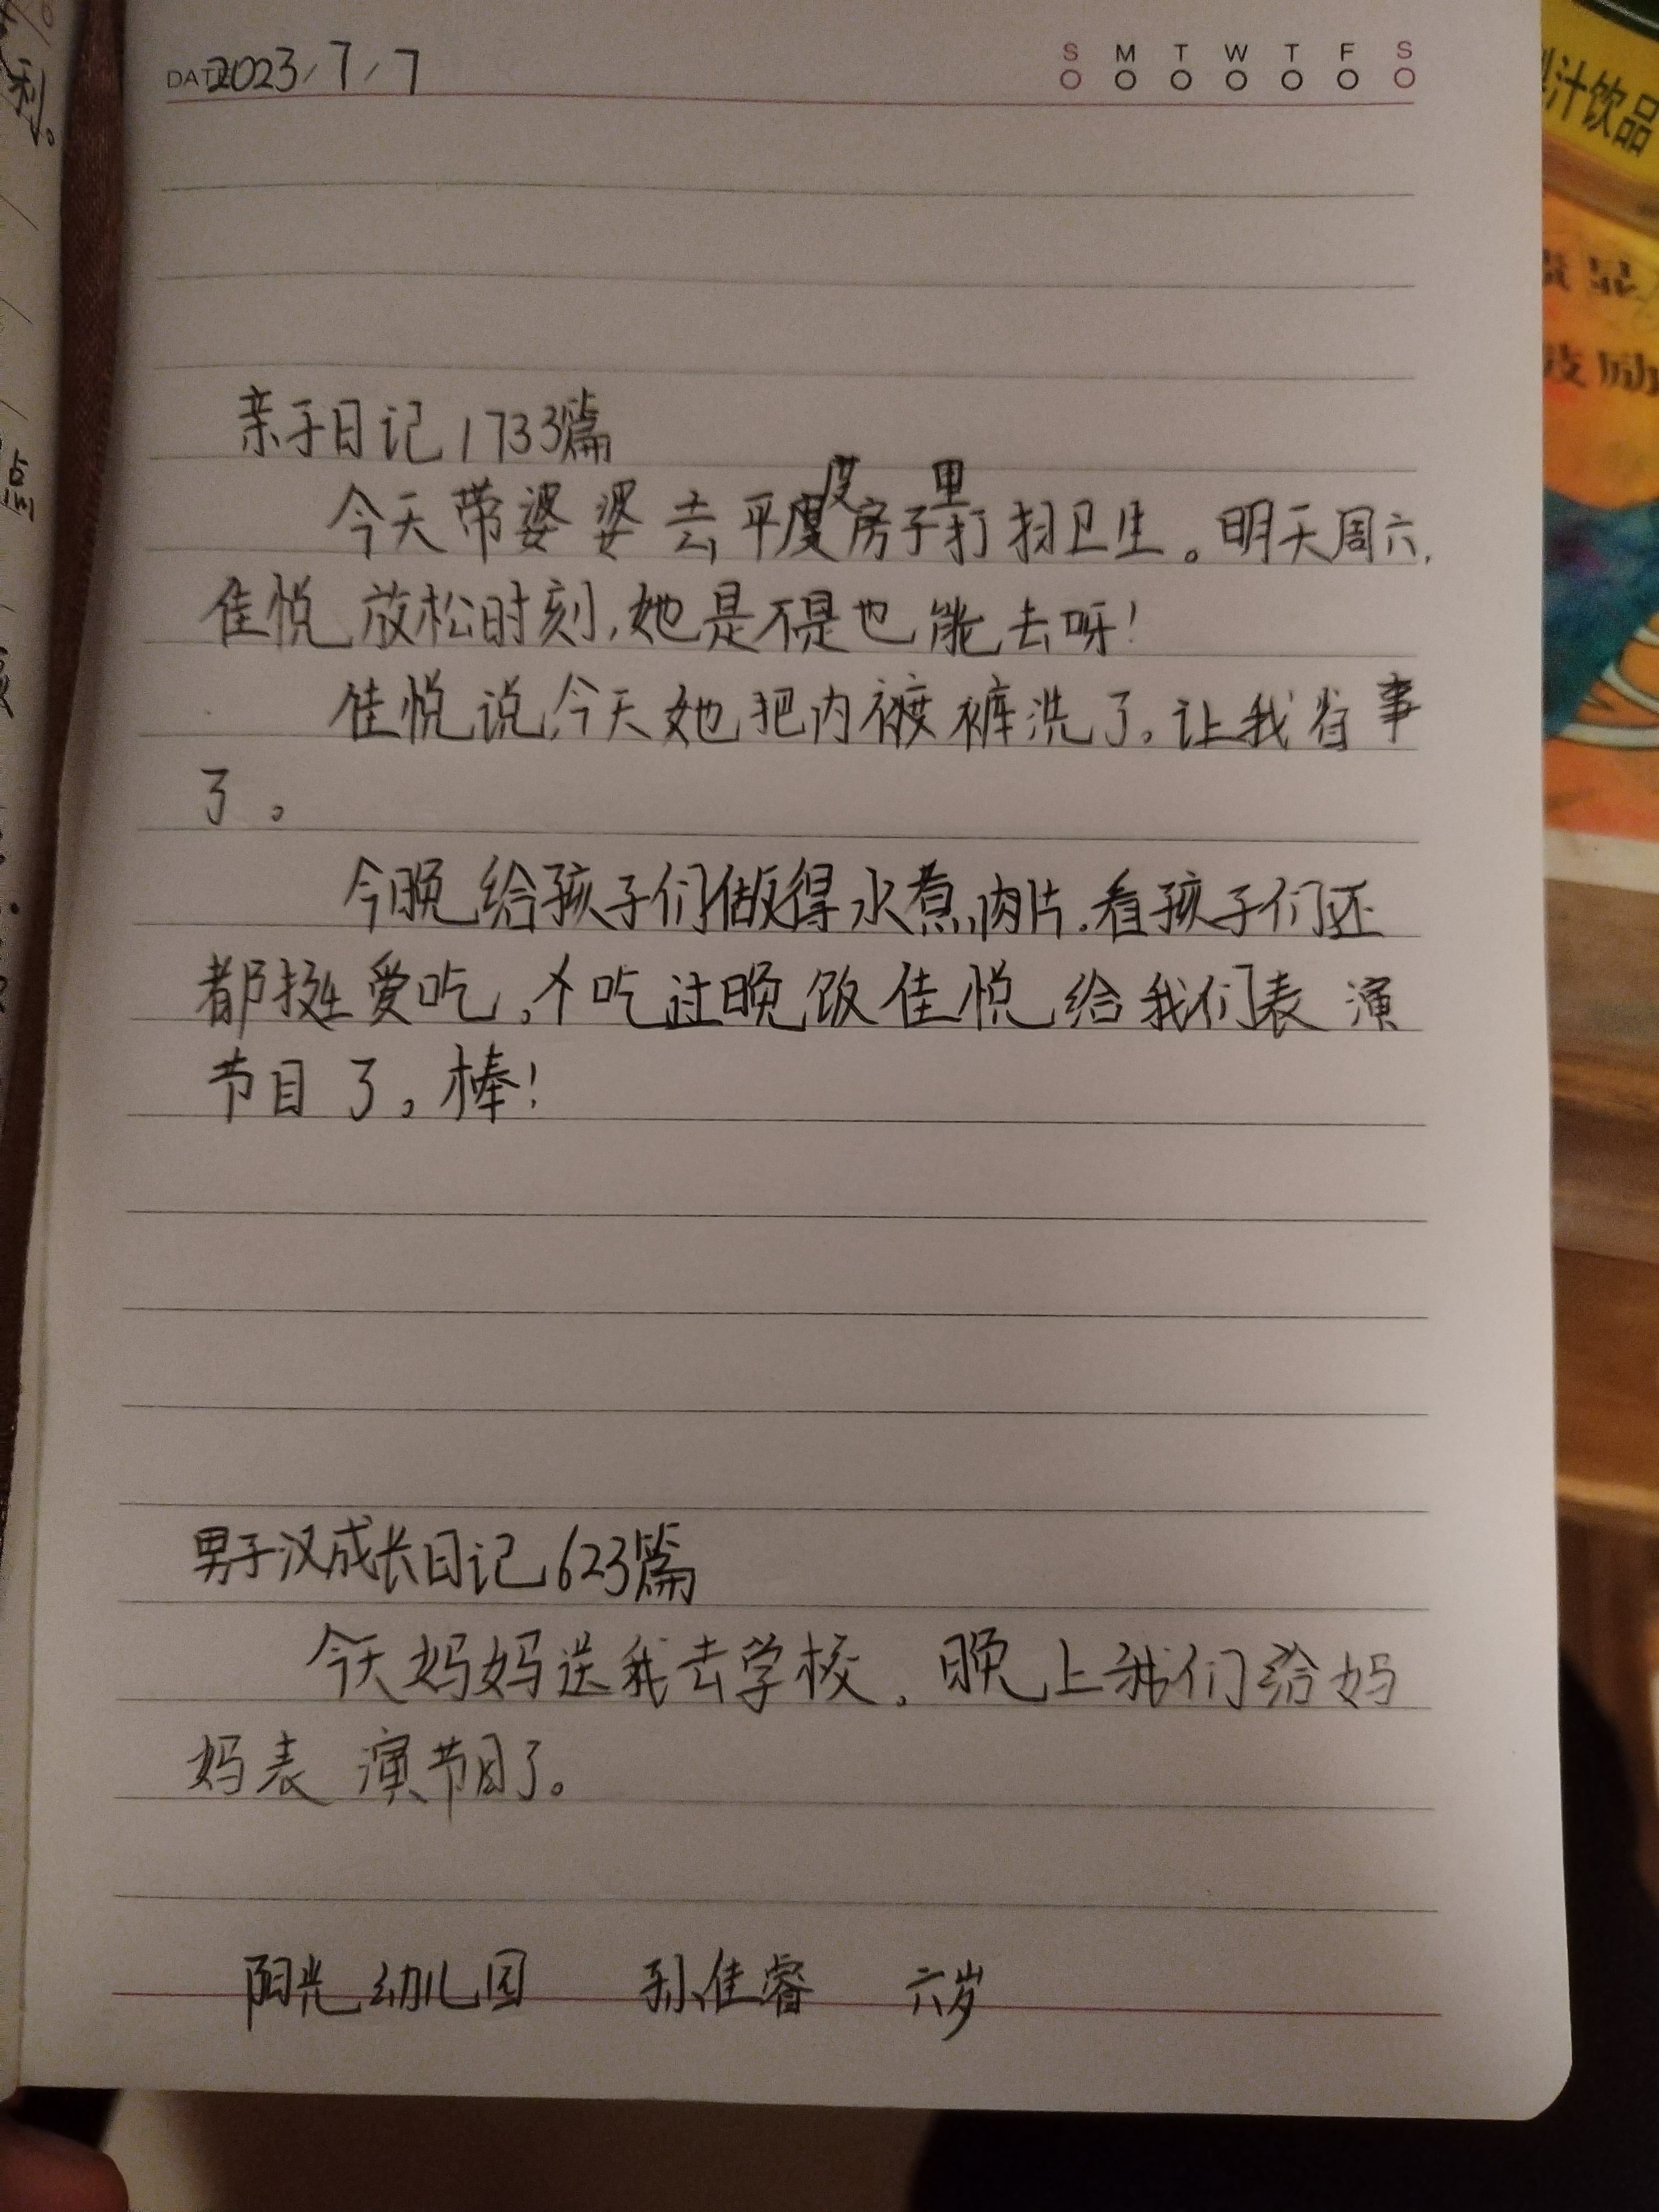 DATE 2023/7/7
S M T W T F S
亲子日记1733篇
今天带婆婆去平度房子里打扫卫生。明天周六,
佳悦放松时刻,她是不是也能去呀!
佳悦说,今天她把内裤洗了,让我省事
了。
今晚给孩子们做得水煮肉片,看孩子们还
都挺爱吃,吃过晚饭佳悦给我们表演
节目了,棒!
男子汉成长日记623篇
今天妈妈送我去学校,晚上我们给妈
妈表演节目了。
阳光幼儿园 孙佳睿 六岁
利。
点
汁饮品
励